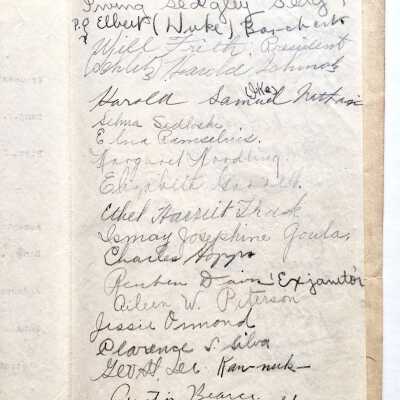 Irving Sedgley Secy
P.S Elbert (Nuke) Borchert
Will Frith, President
(Schlitz) Harold Schmalz
Harold Samuel
Selma Sedloski
Edna Rameselius.
Margaret Nordling.
Elizabeth
Ethel Harriet Trask
Ismay Josephine Goula
Charles Hopps
Reuben Dain! Exjanitor
Aileen W. Peterson
Jessie Ormond
Clarence S. Silva
Geo. H. Lee Kaw-neuk-